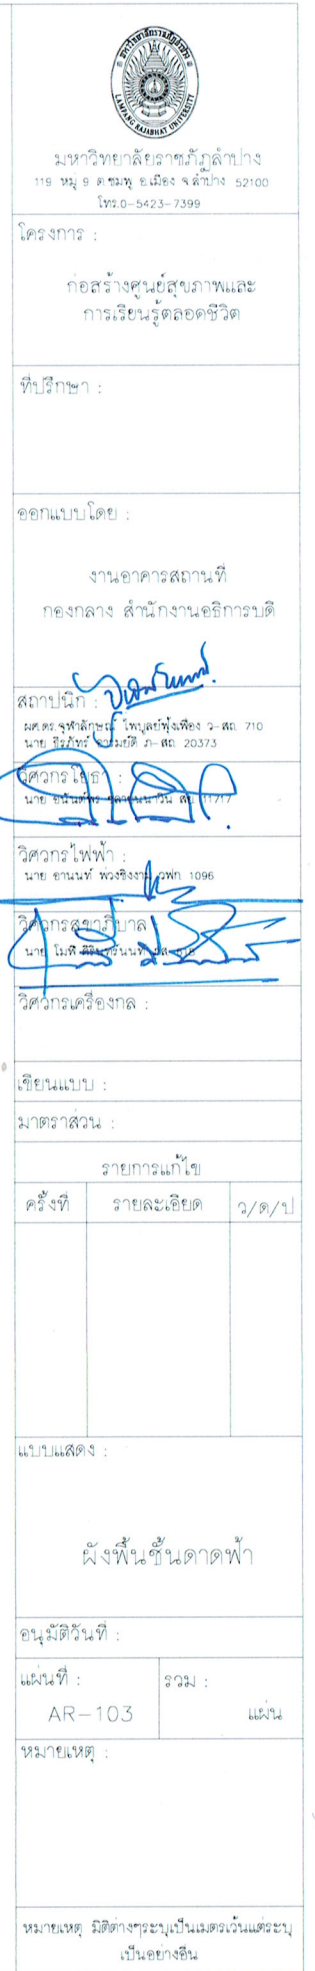 มหาวิทยาลัยราชภัฏลำปาง
LAMPANG RAJABHAT UNIVERSITY
มหาวิทยาลัยราชภัฏลำปาง
119 หมู่ 9 ต.ชมพู อ.เมือง จ.ลำปาง 52100
โทร.0-5423-7399
โครงการ :
ก่อสร้างศูนย์สุขภาพและ
การเรียนรู้ตลอดชีวิต
ที่ปรึกษา :
ออกแบบโดย :
งานอาคารสถานที่
กองกลาง สำนักงานอธิการบดี
สถาปนิก :
ผศ.ดร.จุฬาลักษณ์ ไพบูลย์ฟุ้งเฟื่อง ว-สถ. 710
นาย ธีรภัทร์ ภ-สถ. 20373
วิศวกรโยธา :
นาย 11717
วิศวกรไฟฟ้า :
นาย อานนท์ พ่วงชิงงาม วฟก 1096
วิศวกรสุขาภิบาล
นาย
วิศวกรเครื่องกล :
เขียนแบบ :
มาตราส่วน :
รายการแก้ไข
ครั้งที่ รายละเอียด ว/ด/ป
แบบแสดง :
ผังพื้นชั้นดาดฟ้า
อนุมัติวันที่ :
แผ่นที่ : รวม :
AR-103 แผ่น
หมายเหตุ :
หมายเหตุ มิติต่างๆระบุเป็นเมตรเว้นแต่ระบุ
เป็นอย่างอื่น